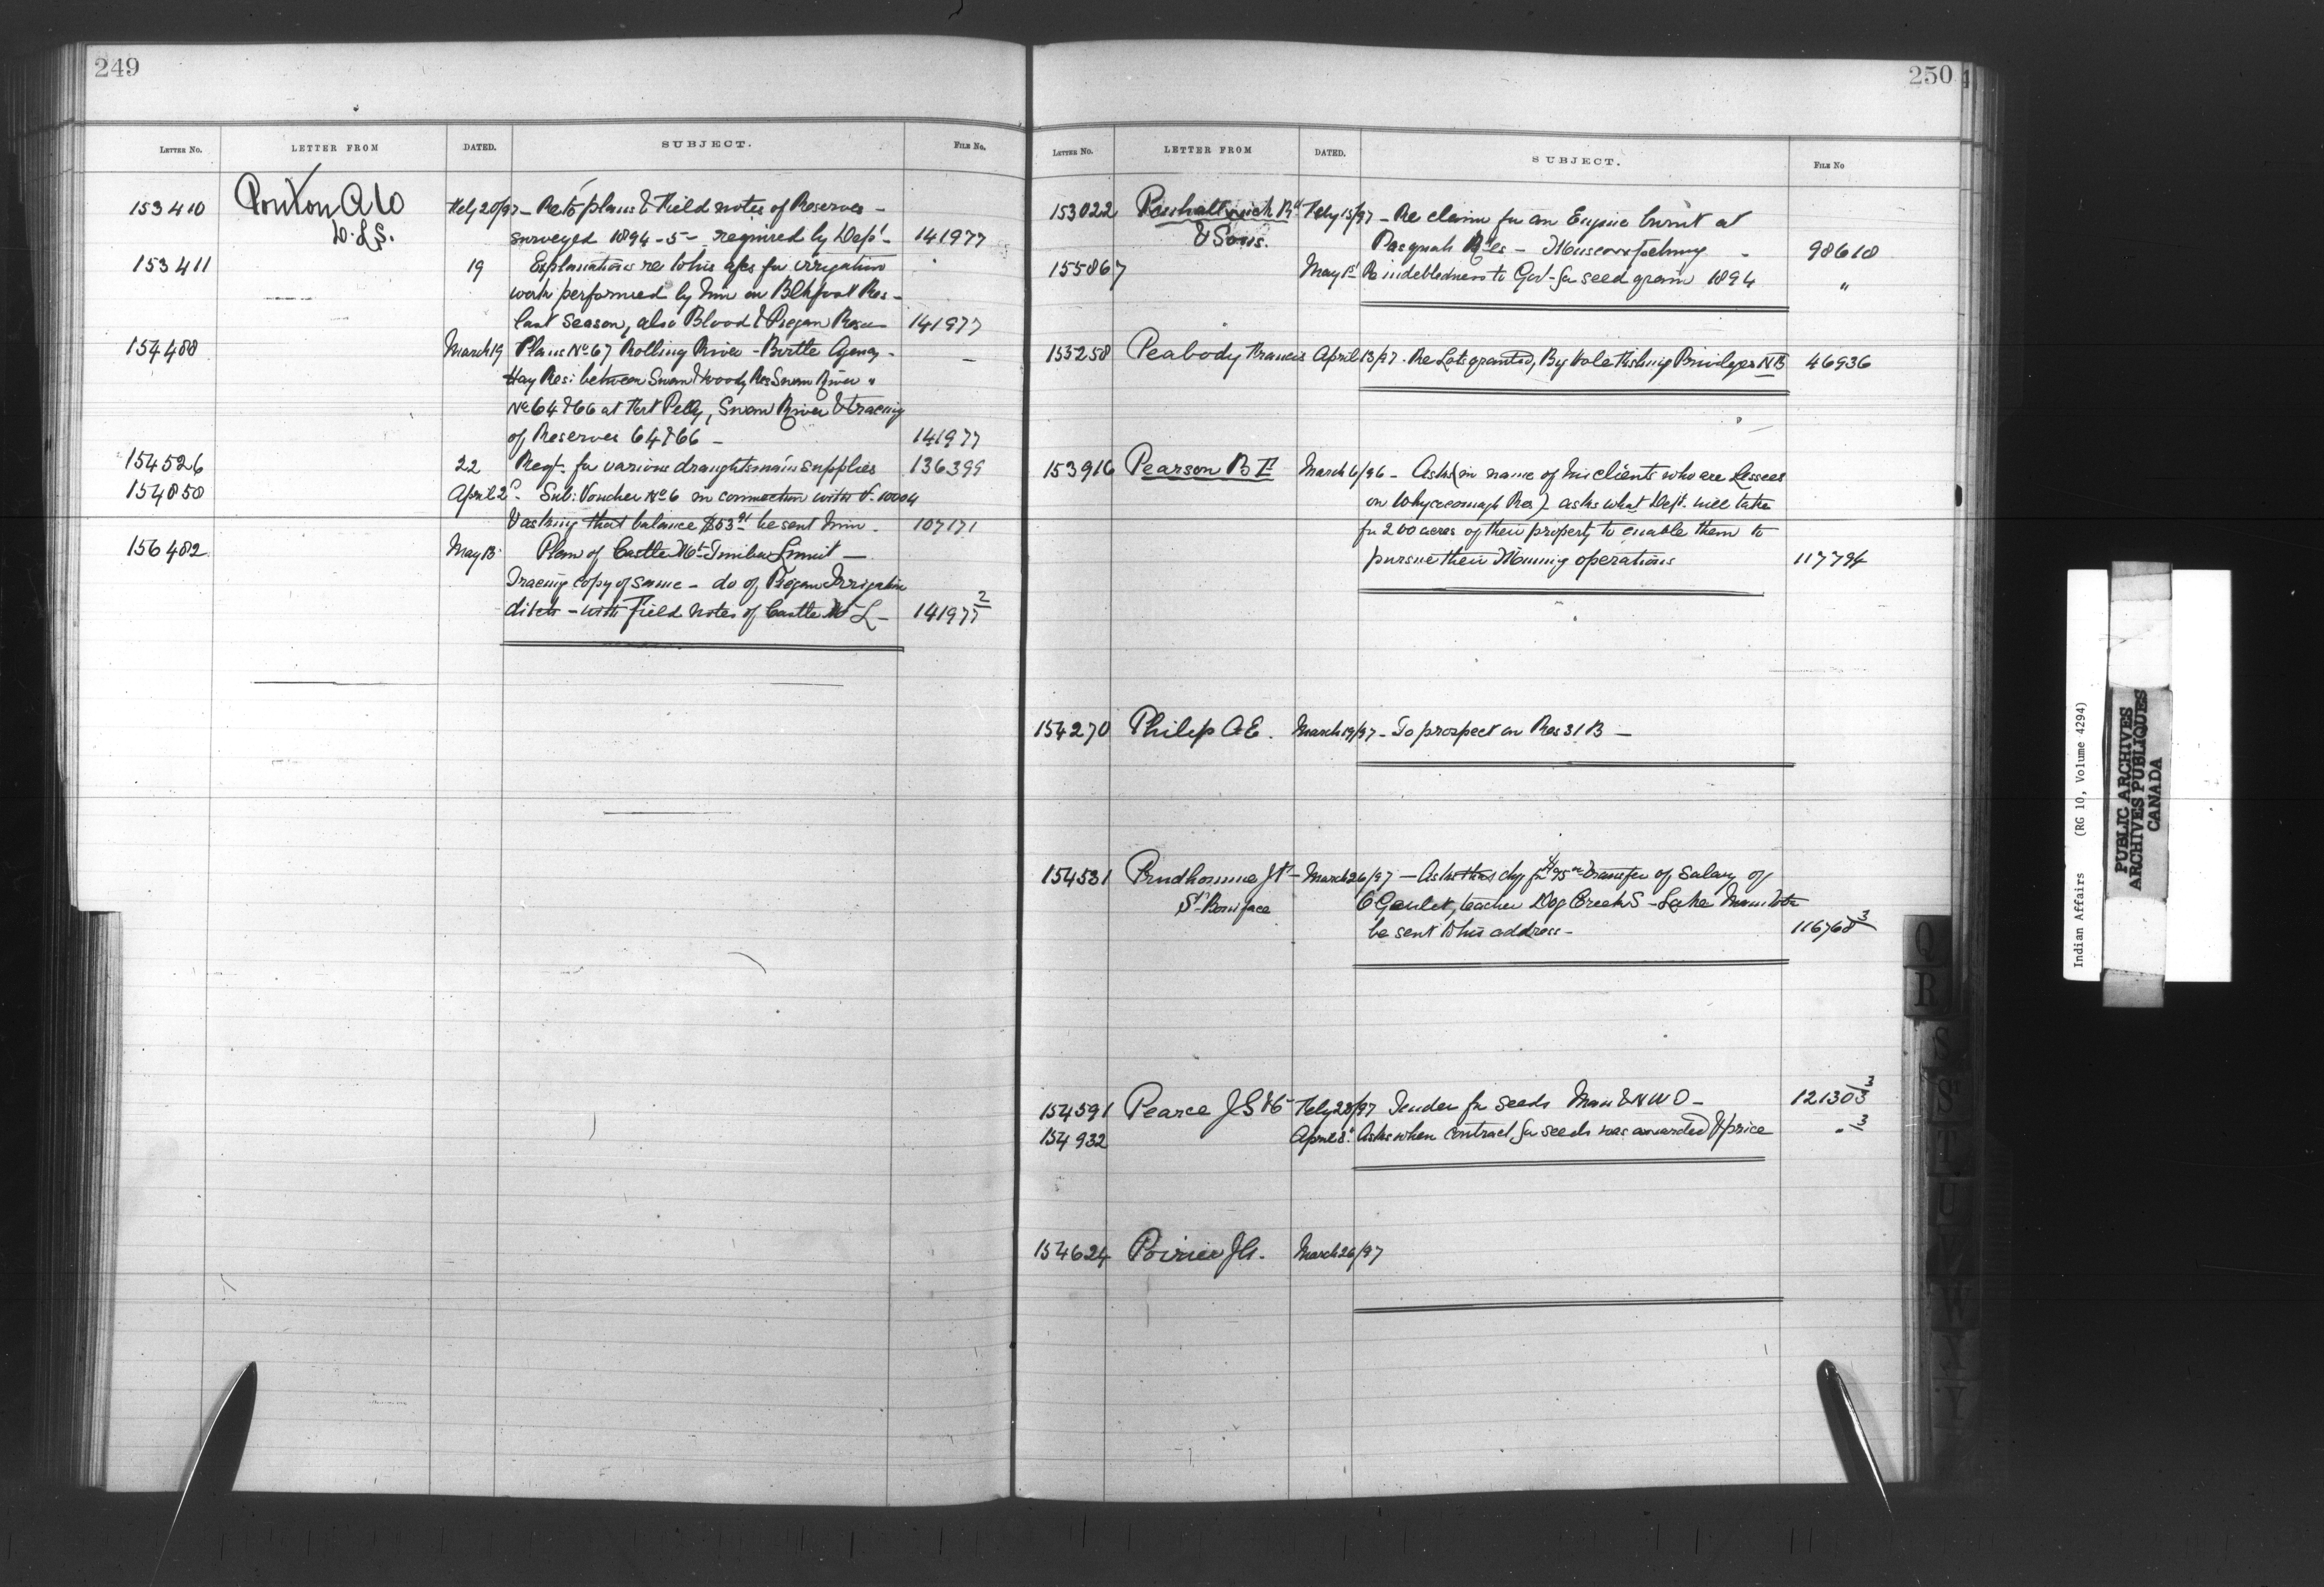 249
LETTER No. LETTER FROM DATED. SUBJECT. FILE No.
153410 Ponton A W Feby 20/97 – Re to plans & Field notes of Reserves –
D.L.S. surveyed 1894-5 – required by Dept – 141977
153411 19 Explanations re to his a/cs for irrigation
work performed by him on Blkfoot Res –
last season, also Blood & Piegan Res 141977
154488 March 19 Plans No 67 Rolling River – Birtle Agency – –
Hay Res: between Swan & Woody Res Swan River "
No 64 & 66 at Fort Pelly, Swan River & tracing
of Reserves 64 & 66 – 141977
154526 22 Reqt. for various draughtsman's supplies 136399
154850 April 2d. Sub: Voucher No 6 in connection with V. 10004
& asking that balance be sent him – 107171
156482 May 13 Plan of Castle Mt Timber Limit –
Tracing copy of same – do of Piegan Irrigation
ditch – with Field notes of Castle Mt L – 141977 2
250
LETTER No. LETTER FROM DATED. SUBJECT. FILE No
153022 Rd Feby 15/97 – Re claim for an Engine burnt at
& Sons. Pasquah Res – Muscowpetung 98618
155867 May 1st Re indebtedness to Govt – for seed grain 1894 "
155258 Peabody Francis April 13/97 – Re Lots granted, By Fishing Privileges NB 46936
153916 Pearson B F March 6/96 – Asks (in name of his clients who are Lessees
on Whycocomagh Res) – asks what Dept. will take
for 200 acres of their property to enable them to
pursue their Mining operations 117794
154270 Philip A E. March 19/97 – To prospect on Res 31B –
154531 Prudhomme J – March 26/97 – Asks that chq for transfer of salary of
St Boniface C Goulet, teacher Dog Creek S – Lake Manitoba
be sent to his address – 116768 3
154591 Pearce J S & Co – Feby 28/97 Tender for seeds Man & N W O – 121303 3
154932 April 8. Asks when contract for seeds was awarded & price " 3
154624 Poirier J G. March 26/97
Q
R
S
St
T
U
W
Y
Indian Affairs (RG 10, Volume 4294)
PUBLIC ARCHIVES
ARCHIVES PUBLIQUES
CANADA